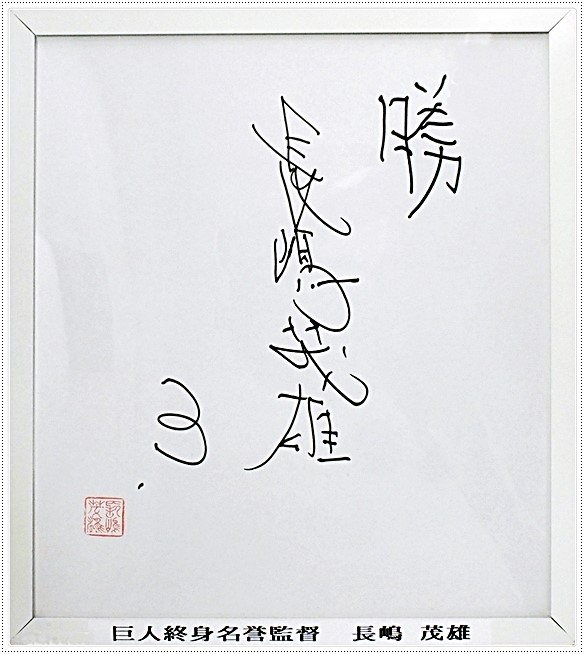 勝
長嶋茂雄
3
長嶋茂雄
巨人終身名誉監督 長嶋 茂雄